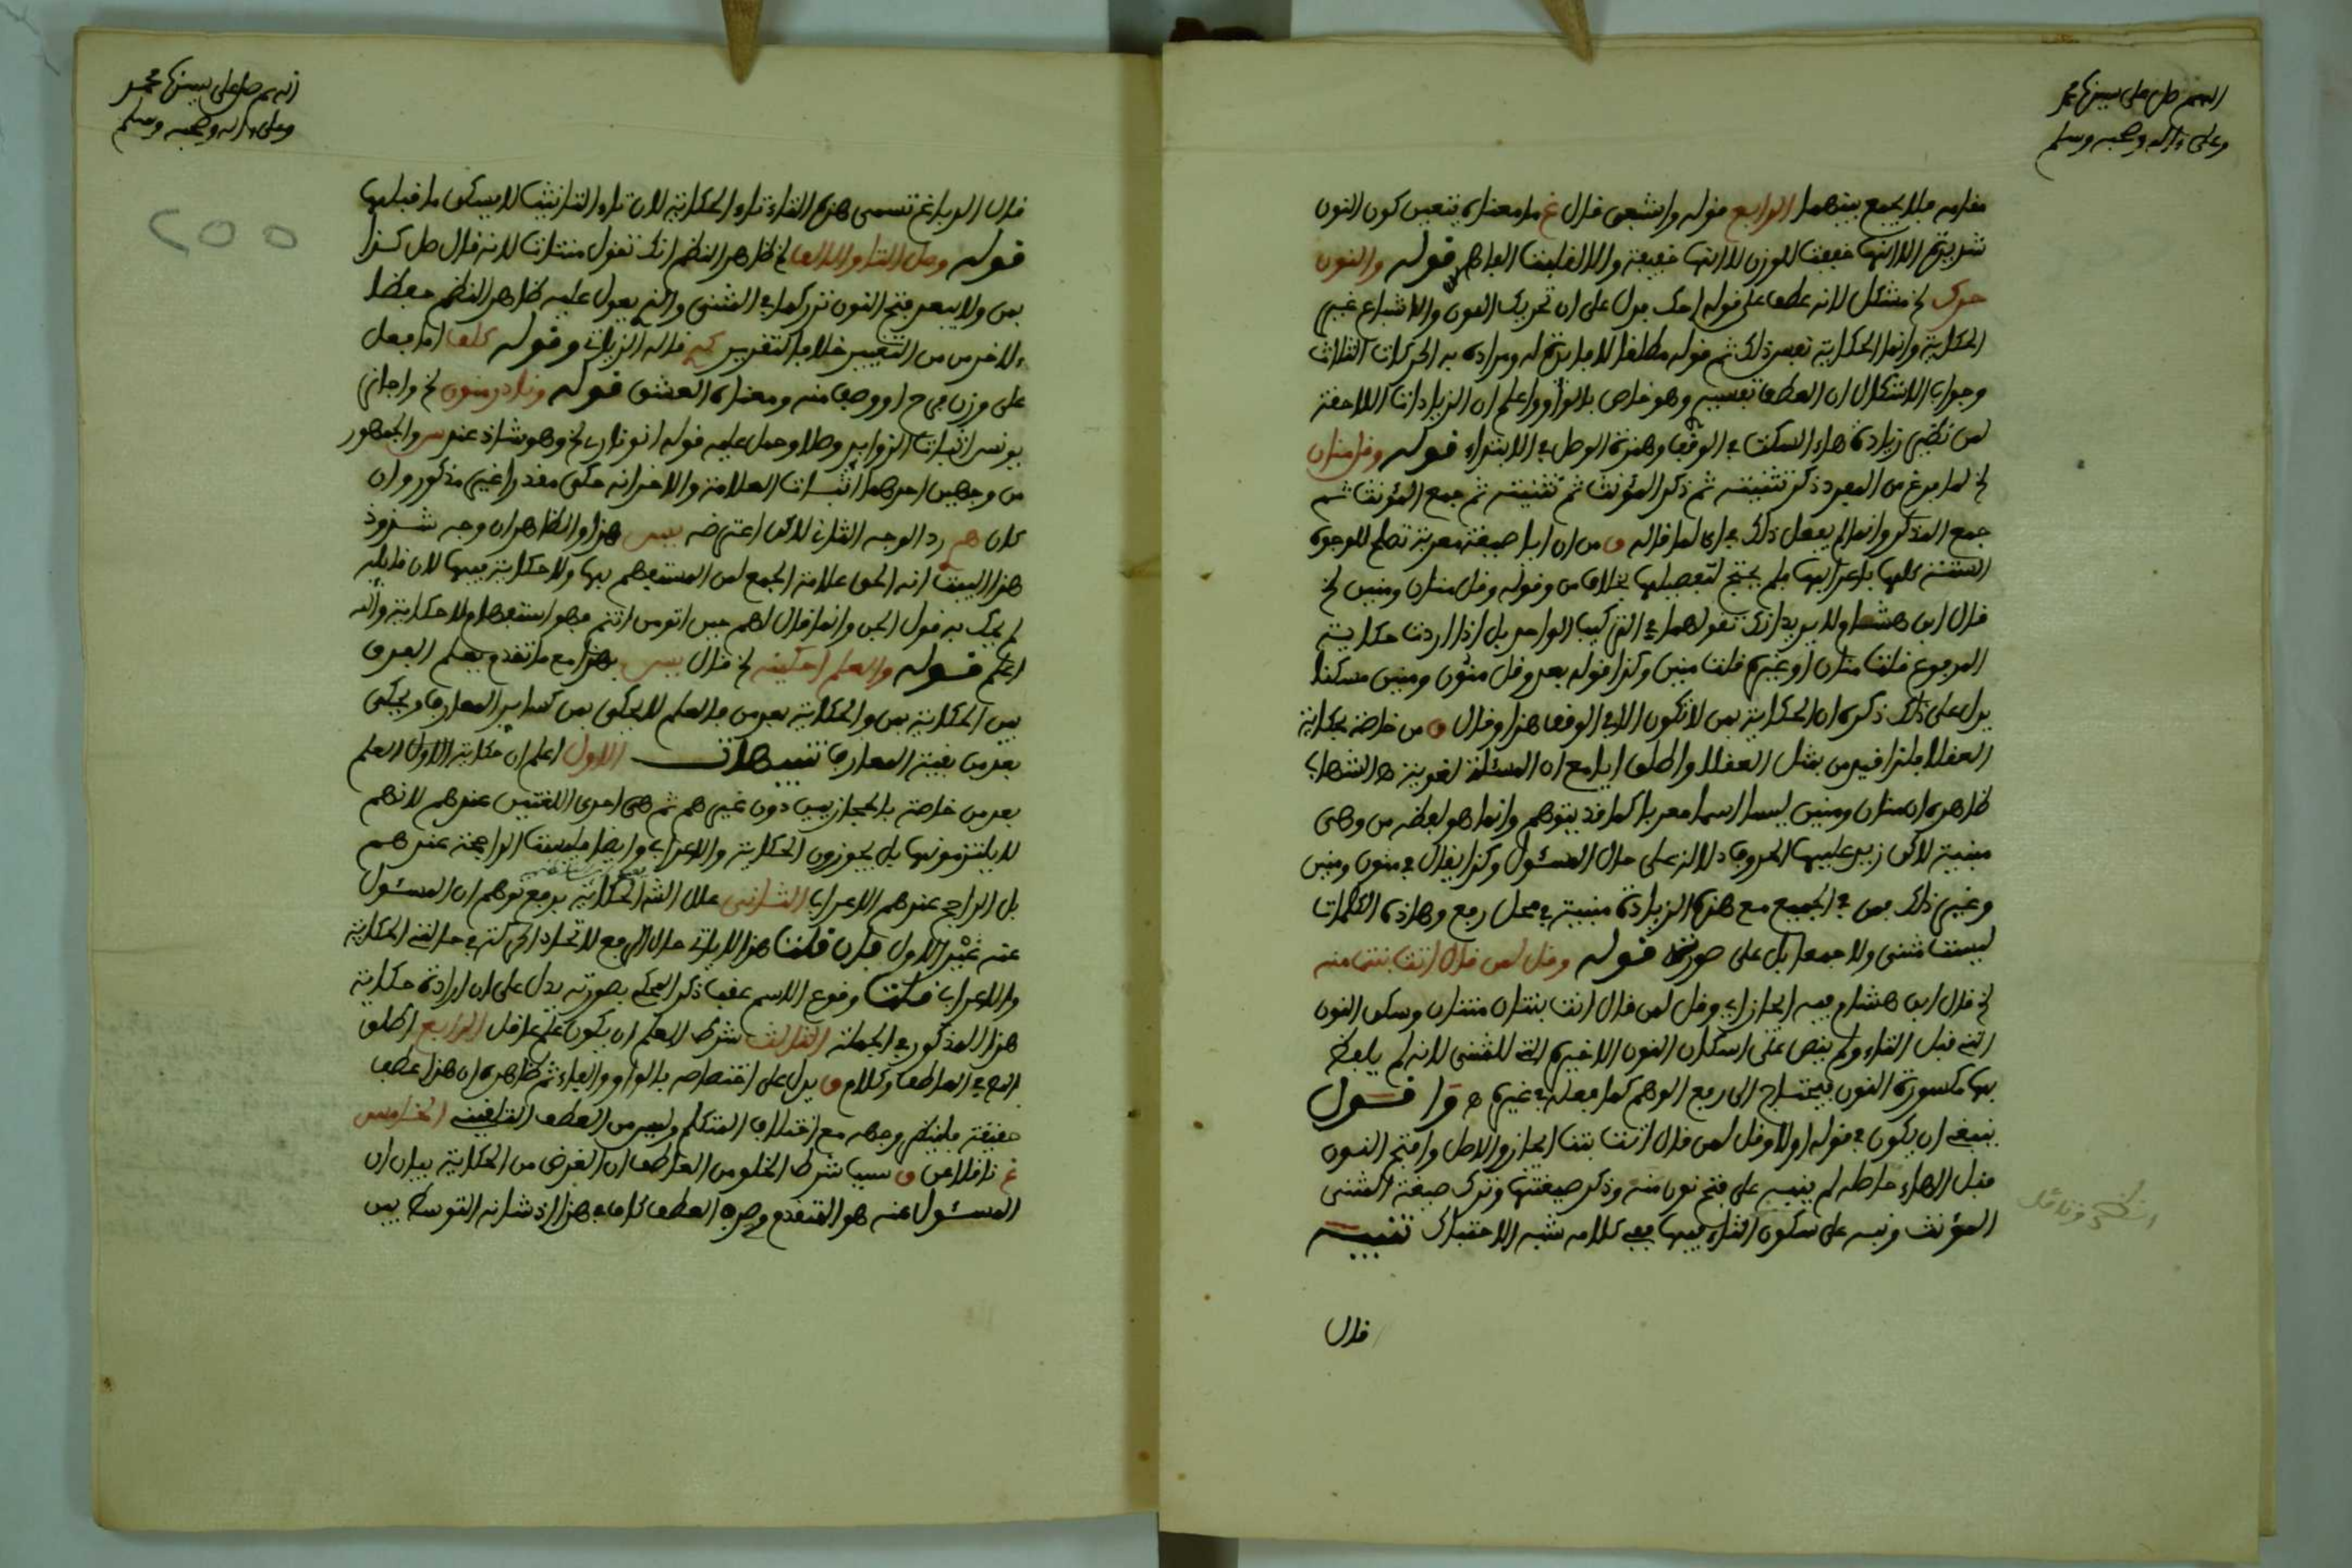 اللهم صل على سيدنا محمد
وعلى ءاله وصحبه وسلم
مقامه فلا يجمع بينهما الرابع قوله واشبعن قال غ ما معناه يتعين كون النون
شديدة الا انها خففت للوزن لا انها خفيفة والا لقلبت الفا اهـ قوله والنون
حرك الخ مشكل لانه عطف على قوله احك فدل على ان تحريك النون والاشباع غير
الحكاية وانما الحكاية نفس ذلك ثم قوله مطلقا لا فايدة له ومراده به الحركات الثلاث
وجواب الاشكال ان العطف تفسير وهو خاص بالواو واعلم ان الزيادات اللاحقة
لمن نظير زيادة هاء السكت في الوقف وهمزة الوصل في الابتداء قوله وقل منان
الخ لما فرغ من المفرد ذكر تثنيته ثم ذكر المؤنث ثم تثنيته ثم جمع المؤنث ثم
جمع المذكر وانما لم يفعل ذلك في اي لما قاله ق من ان ايا صيغة معربة تصلح للوجوه
الستة كلها باعرابها فلم يحتج لتفصيلها بخلاف من وقوله وقل منان ومنين الخ
قال ابن هشام ولا يريد انك تقولهما في التركيب الواحد بل اذا اردت حكاية
المرفوع قلت منان او غيره قلت منين وكذا قوله بعد وقل منون ومنين مسكنا
يدل على ذلك ذكره ان الحكاية بمن لا تكون الا في الوقف هذا وقال ق من خاصة بحكاية
العقلا فلذا قيد من بمثل العقلا واطلق ايا مع ان المسئلة لغوية هـ الشهاب
ظاهره ان منان ومنين ليسا اسما معربا كما قد يتوهم وانما هو لفظه من وهي
مبنية لاكن زيد عليها الحروف دلالة على حال المسئول وكذا يقال في منون ومنين
وغير ذلك فمن في الجميع مع هذه الزيادة مبنية في محل رفع وهاذه الكلمات
ليست مثنى ولا جمعا بل على صورته قوله وقل لمن قال اتت بنت منه
الخ قال ابن هشام فيه ايجاز اي وقل لمن قال اتت بنتان منتان وسكن النون
التي قبل التاء ولم ينص على اسكان النون الاخيرة التي للمثنى لانه لم يلفظ
بها مكسورة النون فيحتاج الى رفع الوهم كما فعله في غيره هـ واقول
ينبغي ان يكون في قوله اولا وقل لمن قال اتت بنت ايجاز والاصل وافتح النون
قبل الهاء حاصله لم ينبه على فتح نون منه وذكر صيغتها وترك صيغة المثنى
المؤنث ونبه على سكون التاء فيها ففي كلامه شبه الاحتباك تنبيه
قال
اللهم صل على سيدنا محمد
وعلى ءاله وصحبه وسلم
255
قال الرباغي تسمى هذه التاء تاء الحكاية لان تاء التانيث لا يسكن ما قبلها
قوله وصل التا والالف الخ ظاهر النظم انك تقول منتات لانه قال صل كذا
بمن ولا يبعد فتح النون تدركها في المثنى والذي يعول عليه ظاهر النظم حفظا
ءلاخر من من التغيير خلافا لتقرير كبه قاله الزيات وقوله كلف اما فعل
على وزن فرح او وصف منه ومعناه العشق قوله ونادر منون الخ واجاز
يونس اثبات الزوايد وصلا وحمل عليه قوله اتو ناري الخ وهو شاذ عند س والجمهور
من وجهين احدهما اثبات العلامة والاخر انه حكى مقدرا غير مذكور وان
كان هم رد الوجه الثاني لاكن اعترضه يس هذا والظاهر ان وجه شذوذ
هذا البيت انه الحق علامة الجمع لمن المستفهم بها ولا حكاية فيها لان قايله
لم يحك به قول الجن وانما قال لهم حين اتوه من انتم فهو استفهام لا حكاية والله
اعلم قوله والعلم احكينه الخ قال يس بهذا مع ما تقدم يعلم الفرق
بين الحكاية بمن والحكاية بعد من فالعلم لا يحكى بمن كساير المعارف ويحكى
بعد من بقية المعارف تنبيهات الاول اعلم ان حكاية الاول العلم
بعد من خاصة بالحجازيين دون غيرهم ثم هي احدى اللغتين عندهم لانهم
لا يلتزمونها بل يجوزون الحكاية والاعراب وايضا فليست الراجحة عندهم
بل الراجح عندهم الاعراب الثاني علل الش الحكاية برفع توهم ان المسئول
عنه غير الاول فان قلت هذا لا ياتي حال الرفع لاتحاد الحركة في حالتي الحكاية
والاعراب قلت وقوع الاسم عقب ذكر المحكي بصورته يدل على ان ارادة حكاية
هذا المذكور في الجملة الثالث شرط العلم ان يكون علم عاقل الرابع اطلق
الش في العاطف وكلام ق يدل على اختصاصه بالواو والفاء ثم ظاهره ان هذا عطف
حقيقة فلينظر وجهه مع اختلاف المتكلم وليس من العطف التلقيني الخامس
غ ناقلا عن ق سبب شرط الخلو من العاطف ان الغرض من الحكاية بيان ان
المسئول عنه هو المتقدم وحرف العطف كاف في هذا اذ شانه التوسط بين